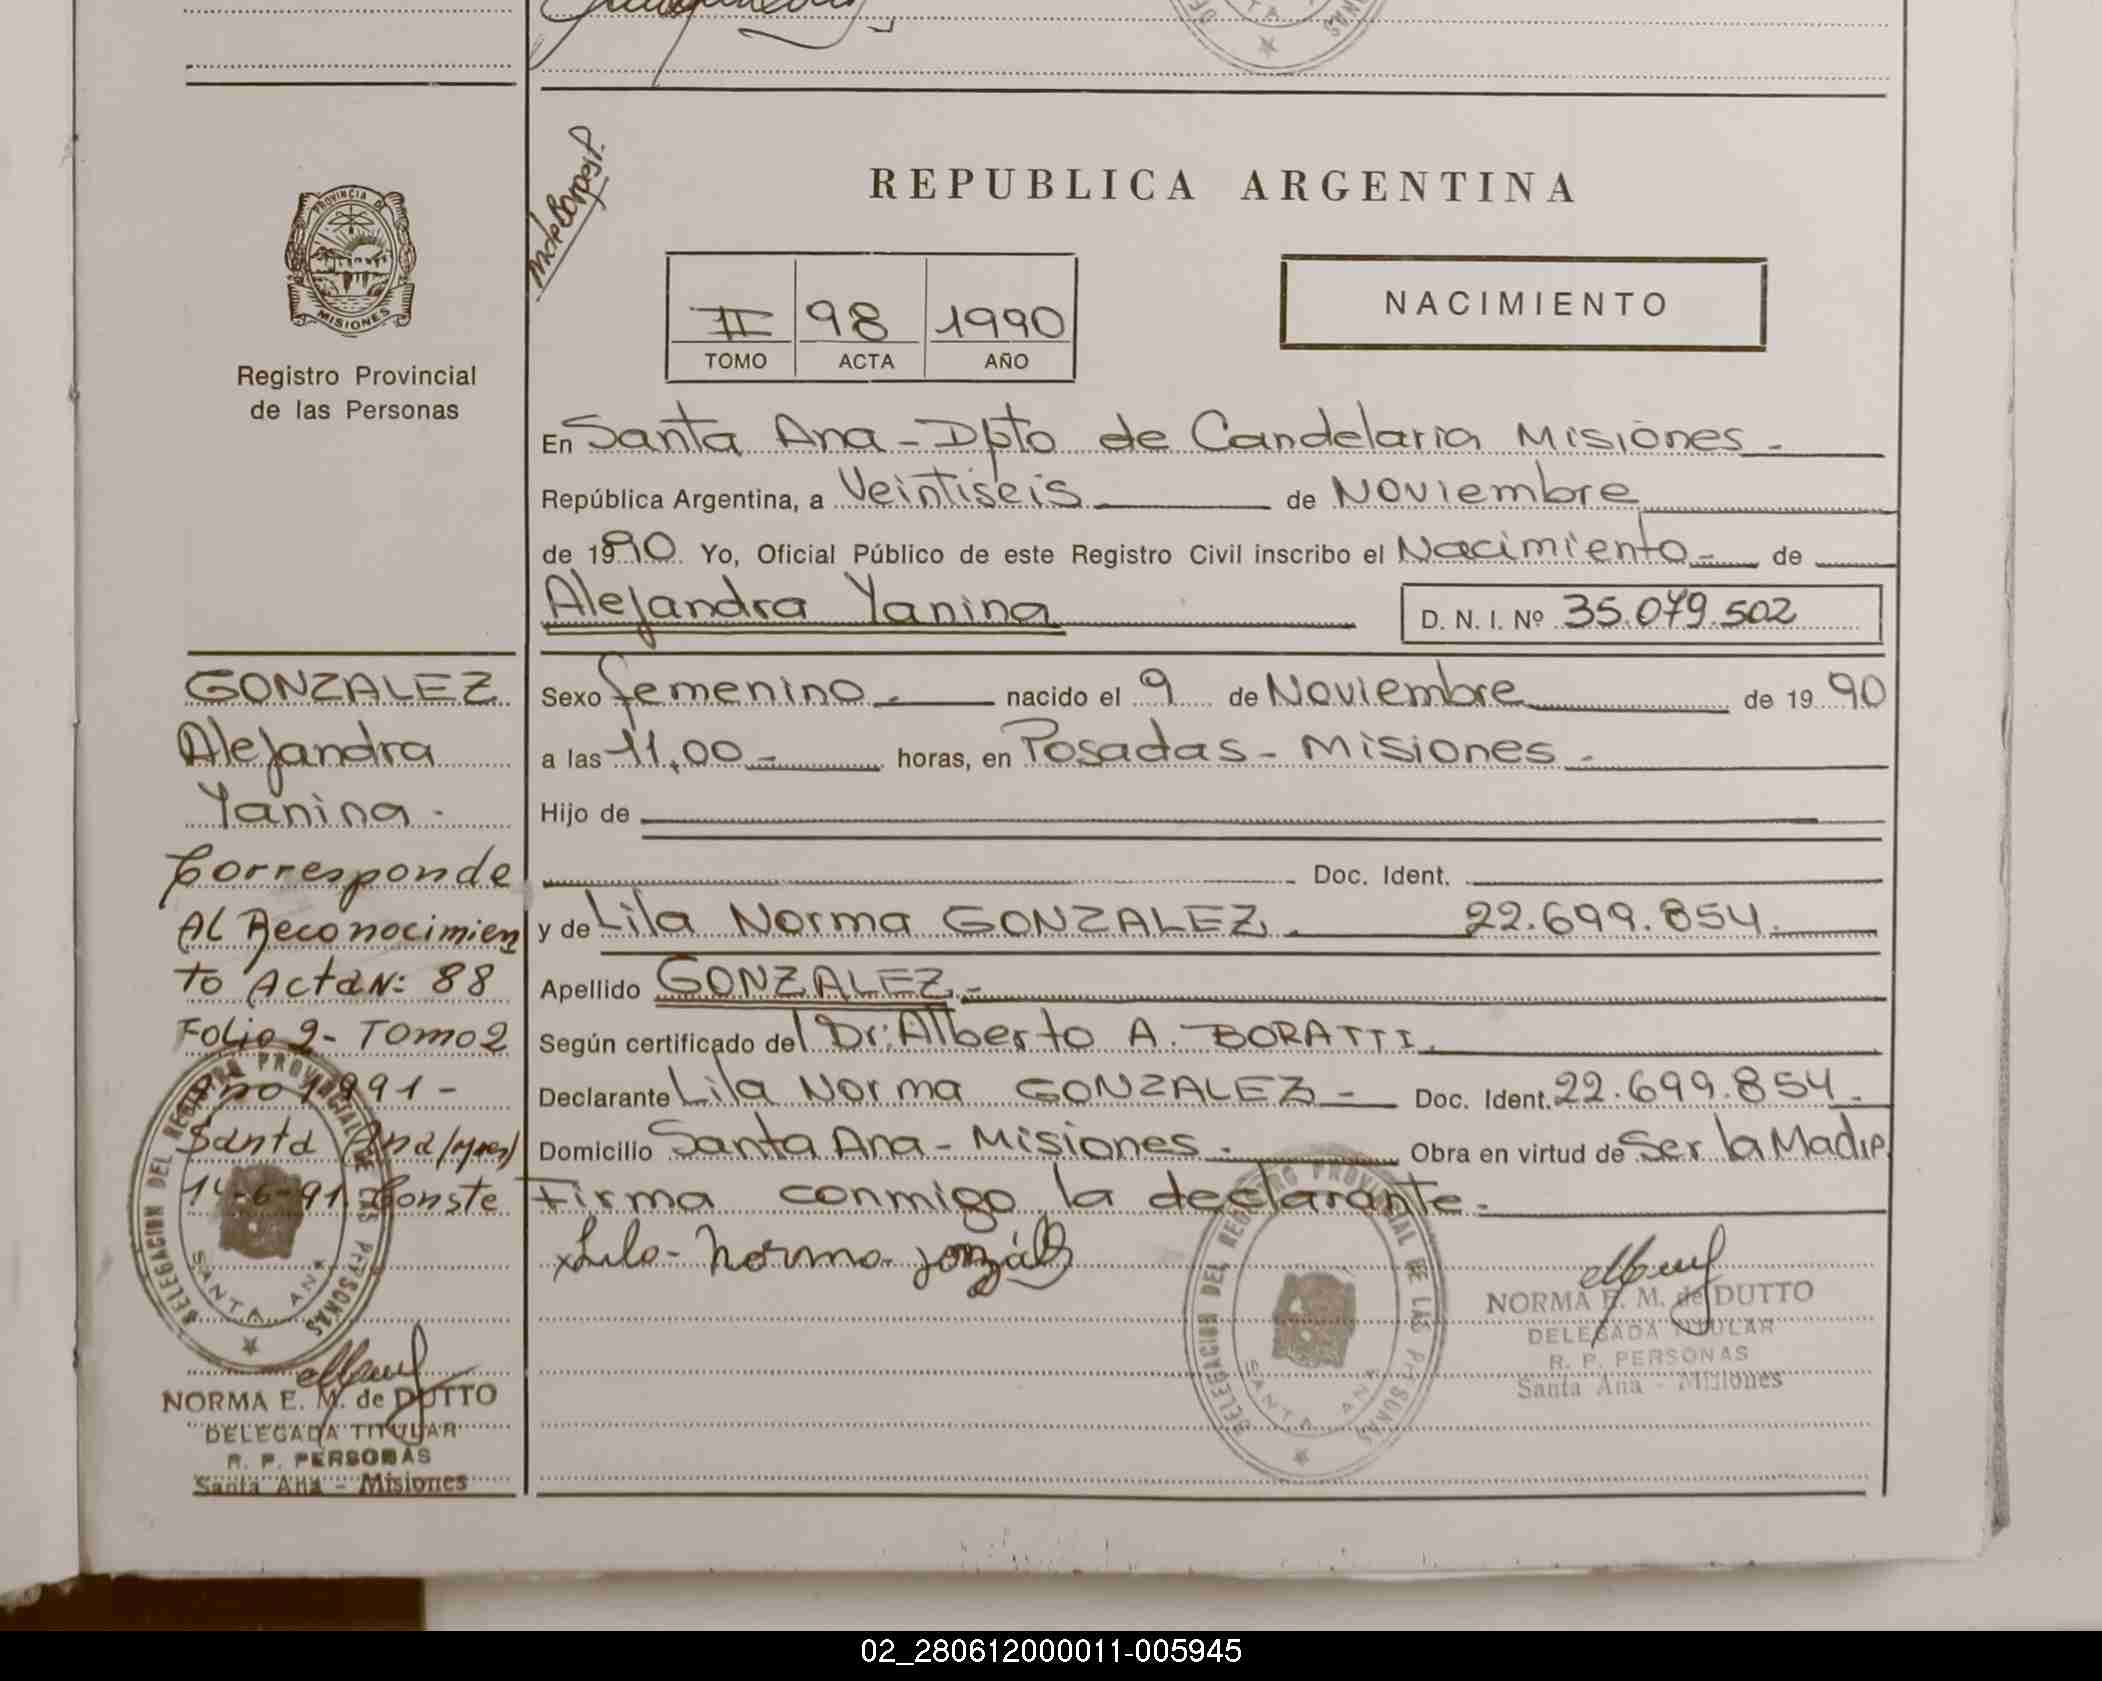 REPUBLICA ARGENTINA
PROVINCIA DE
MISIONES
Registro Provincial
de las Personas
II 98 1990
TOMO ACTA AÑO
NACIMIENTO
En Santa Ana - Dpto de Candelaria Misiones -
República Argentina, a Veintiseis de Noviembre
de 1990 Yo, Oficial Público de este Registro Civil inscribo el Nacimiento - de
Alejandra Yanina
D. N. I. Nº 35.079.502
Sexo femenino - nacido el 9 de Noviembre de 1990
a las 11,00 - horas, en Posadas - Misiones -
Hijo de
Doc. Ident.
y de Lila Norma GONZALEZ. 22.699.854.
Apellido GONZALEZ. -
Según certificado del Dr: Alberto A. BORATTI.
Declarante Lila Norma GONZALEZ - Doc. Ident. 22.699.854.
Domicilio Santa Ana - Misiones. Obra en virtud de Ser la Madre
Firma conmigo la declarante -
x Lila Norma González
DELEGACION DEL REGISTRO PROVINCIAL DE LAS PERSONAS
SANTA ANA
NORMA E. M. de DUTTO
DELEGADA TITULAR
R. P. PERSONAS
Santa Ana - Misiones
GONZALEZ
Alejandra
Yanina -
Corresponde
Al Reconocimien
to Acta N: 88
Folio 9 - Tomo 2
Año 1991 -
Santa Ana
14-6-91. Conste
DELEGACION DEL REGISTRO PROVINCIAL DE LAS PERSONAS
SANTA ANA
NORMA E. M. de DUTTO
DELEGADA TITULAR
R. P. PERSONAS
Santa Ana - Misiones
02_280612000011-005945